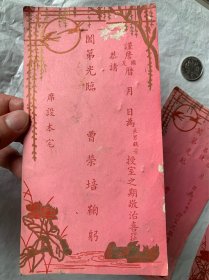 謹詹國曆 月 日為長男毓 授室之期敬治喜筵
恭請
闔第光臨 曹榮培鞠躬
席設本宅